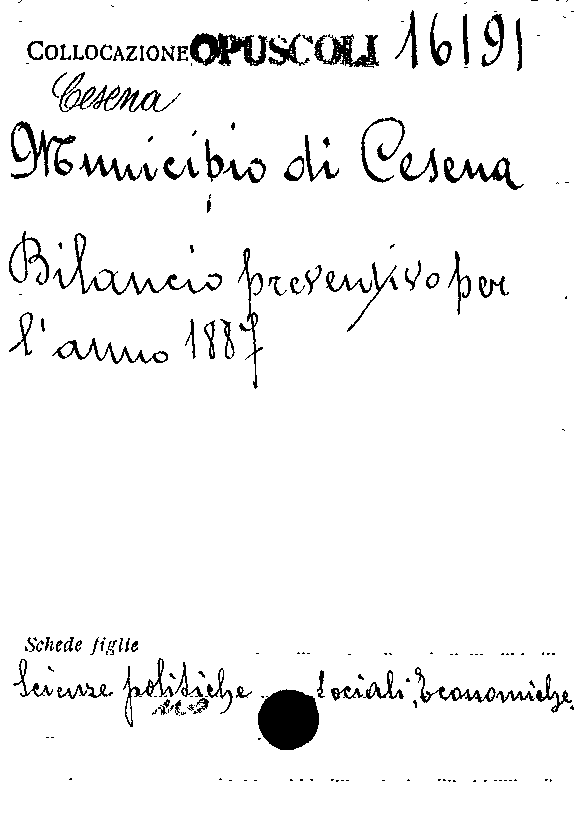 COLLOCAZIONE OPUSCOLI 16191
Cesena
Municipio di Cesena
Bilancio preventivo per
l'anno 1887
Schede figlie
Scienze politiche sociali, economiche